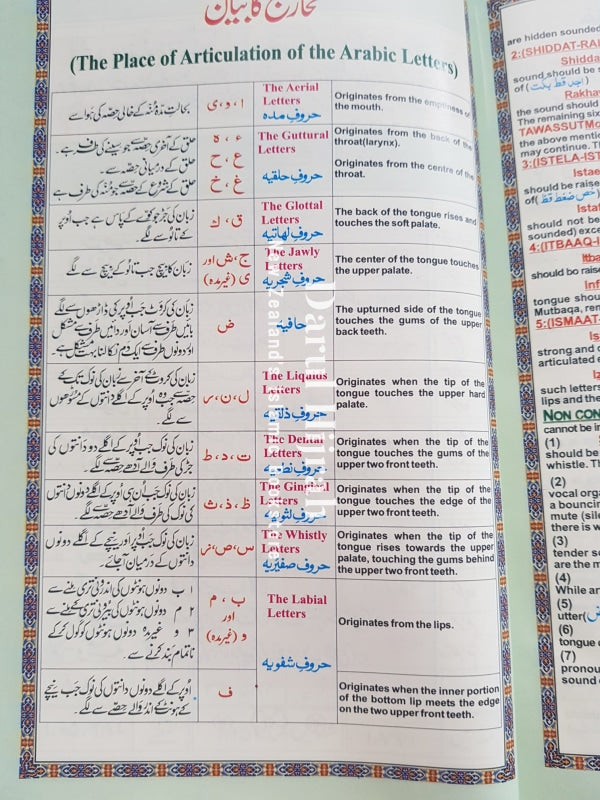 مخارج کا بیان
(The Place of Articulation of the Arabic Letters)
بحالتِ مدہ مُنہ کے خالی حِصّہ کی ہوا سے
ا ، و ، ی
The Aerial
Letters
حروفِ مدہ
Originates from the emptiness of
the mouth.
حلق کے آخری حِصّہ سے جو سینے کی طرف ہے۔
حلق کے درمیانی حِصّہ سے۔
حلق کے شروع کے حِصّہ سے جو مُنہ کی طرف ہے
ء ، ہ
ع ، ح
غ ، خ
The Guttural
Letters
حروفِ حلقیہ
Originates from the back of the
throat(larynx).
Originates from the centre of the
throat.
زبان کی جڑ جو کوّے کے پاس ہے جب اُوپر
کے تالُو سے لگے۔
ق ، ك
The Glottal
Letters
حروفِ لهاتیه
The back of the tongue rises and
touches the soft palate.
زبان کا بیچ جب تالُو کے بیچ سے لگے
ج ، ش اور
ی (غیرمدہ)
The Jawly
Letters
حروفِ شجریه
The center of the tongue touches
the upper palate.
زبان کی کروٹ جب اُوپر کی داڑھوں سے لگے
بائیں طرف سے آسان اور دائیں طرف سے مشکل
اور دونوں طرف سے ایک دم نکالنا بہت مشکل ہے۔
ض
حافیہ
The upturned side of the tongue
touches the gums of the upper
back teeth.
ل ، ن ، ر
The Liquids
Letters
حروفِ ذلقیه
Originates when the tip of the
tongue touches the upper hard
palate.
زبان کی نوک جب اُوپر کے اگلے دو دانتوں کی
جڑ کی طرف والے آدھے حصّے سے لگے۔
ت ، د ، ط
The Dental
Letters
Originates when the tip of the
tongue touches the gums of the
upper two front teeth.
ظ ، ذ ، ث
The Gingival
Letters
حروفِ لثویه
Originates when the tip of the
tongue touches the edge of the
upper two front teeth.
زبان کی نوک جب اُوپر اور نیچے کے اگلے دونوں
دانتوں کے درمیان آجائے۔
س ، ص ، ز
The Whistly
Letters
حروف صفیریه
Originates when the tip of the
tongue rises towards the upper
palate, touching the gums behind
the upper two front teeth.
۱ ب دونوں ہونٹوں کی اندرونی تری ملنے سے
۲ م دونوں ہونٹوں کی بیرونی تری
۳ و غیرمدہ دونوں ہونٹوں کو گول کر کے
ناتمام بند کرنے سے۔
ب ، م
اور
و (غیرمدہ)
The Labial
Letters
حروفِ شفویه
Originates from the lips.
اُوپر کے اگلے دونوں دانتوں کی نوک جب نیچے
کے ہونٹ کے اندر والے حصّے سے لگے۔
ف
Originates when the inner portion
of the bottom lip meets the edge
on the two upper front teeth.
Darul Hijrah
New Zealand's
are hidden sounded
2:(SHIDDAT-RA
Shidda
sound should be s
of (اجد قط بکت)
Rakha
the sound should
The remaining six
TAWASSUTMo
the above menti
may continue. Th
3:(ISTELA-IST
Istae
should be raise
of(خص ضغط قظ)
Istaf
should not be
sounded) exce
4:(ITBAAQ-I
Itba
should be raise
Inf
tongue shou
Mutbaqa, ren
5:(ISMAAT-
Is
strong and c
articulated e
Iz
such letters
lips and the
NON CON
cannot be in
(1)
should be
whistle. Th
(2)
vocal orga
a bouncin
mute (sile
there is w
(3)
tender so
are the m
(4)
While ar
(5)
utter(
(6)
tongue a
(7)
pronou
sound